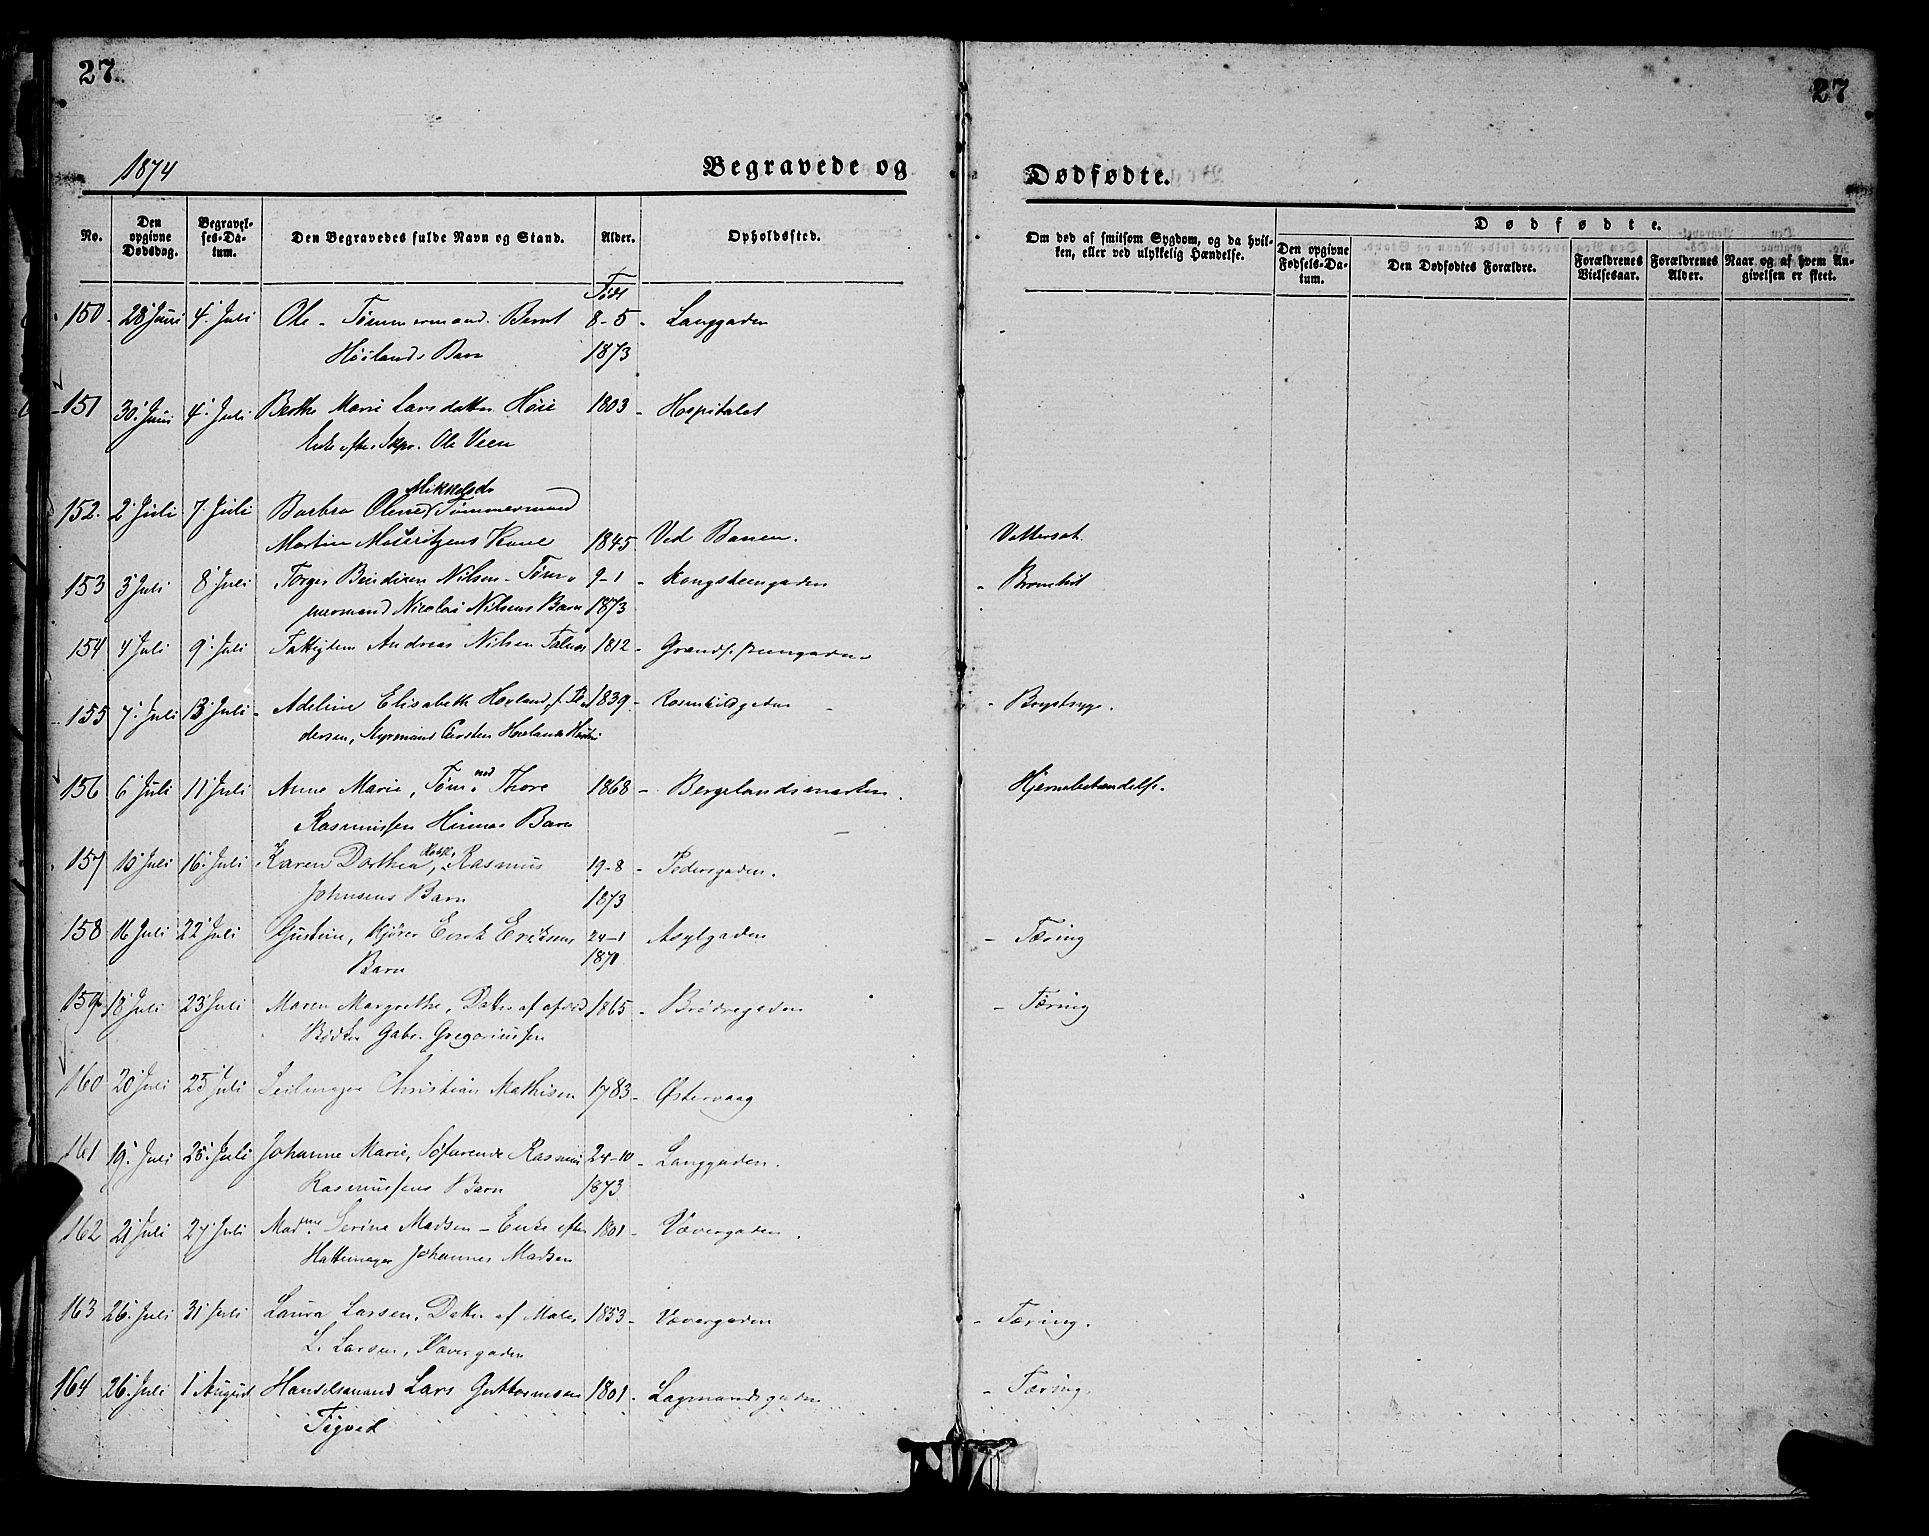 27.
27
1874
Begravede og
Dødfødte.
No.
Den opgivne Dødsdag.
Begravelses-Datum.
Den Begravedes fulde Navn og Stand.
Alder.
Opholdssted.
Om død af smitsom Sygdom, og da hvilken, eller ved ulykkelig Hændelse.
Dødfødte.
Den opgivne Fødsels-Datum.
Den Dødfødtes Forældre.
Forældrenes Vielsesaar.
Forældrenes Alder.
Naar og af hvem Angivelsen er skeet.
Født
150 28 Juni 4 Juli Ole - Tømmermand Bernt 8-5 - Langgaden
Høilands Barn 1873
151 30 Juni 4 Juli Berthe Marie Larsdatter Høie 1803 - Hospitalet
Enke efter Skpr. Ole Veen
Mikkelsdr
152. 2 Juli 7 Juli Barbra Olene Tømmermand
Martin Mauritzens Kone 1845 Ved Banen. Vattersot.
153 3 Juli 8 Juli Torger Bendixen Nilsen - Tøm- 9-1 - Kongsteengaden - Bronchit
mermand Nicolai Nilsens Barn 1873
154 4 Juli 9 Juli Fattiglem Andreas Nilsen 1812 -
155 7 Juli 13 Juli - Adeline Elisabeth Hovland, f. Pe- 1839 - Rosenkildgaden - Brystsyge.
dersen, Styrmand Carsten Hovlands Hustru
156 6 Juli 11 Juli Anne Marie, Tømmd Thore 1868 - Bergelandsmarken. Hjernebetændelse.
Rasmussen Hinnas Barn
157 10 Juli 16 Juli Karen Dorthea, Rasmus 19-8 - Pedersgaden.
Johnsens Barn 1873
158 16 Juli 22 Juli Gustine, Kjører Enok Eriksens 24-1 Asylgaden - Tæring
Barn 1870
159 18 Juli 23 Juli Maren Margrethe, Datter af afdød 1865 - Brødregaden - Tæring
Bødker Gabr. Gregoriussen
160 20 Juli 25 Juli Seilmager Christian Mathisen 1783 - Østervaag
161 19 Juli 25 Juli Johanne Marie, Søfarende Rasmus 24-10 - Langgaden.
Rasmussens Barn 1873
162 21 Juli 27 Juli Madme Serine Madsen - Enke efter 1801 - Vævergaden.
Hattemager Johannes Madsen
163 26 Juli 31 Juli Laura Larsen, Datter af Maler 1853 - Vævergaden - Tæring.
L. Larsen, Vævergaden
164 26 Juli 1 August Handelsmand Lars Guttormsen 1801 - Lagmandsgaden - Tæring.
Tigved